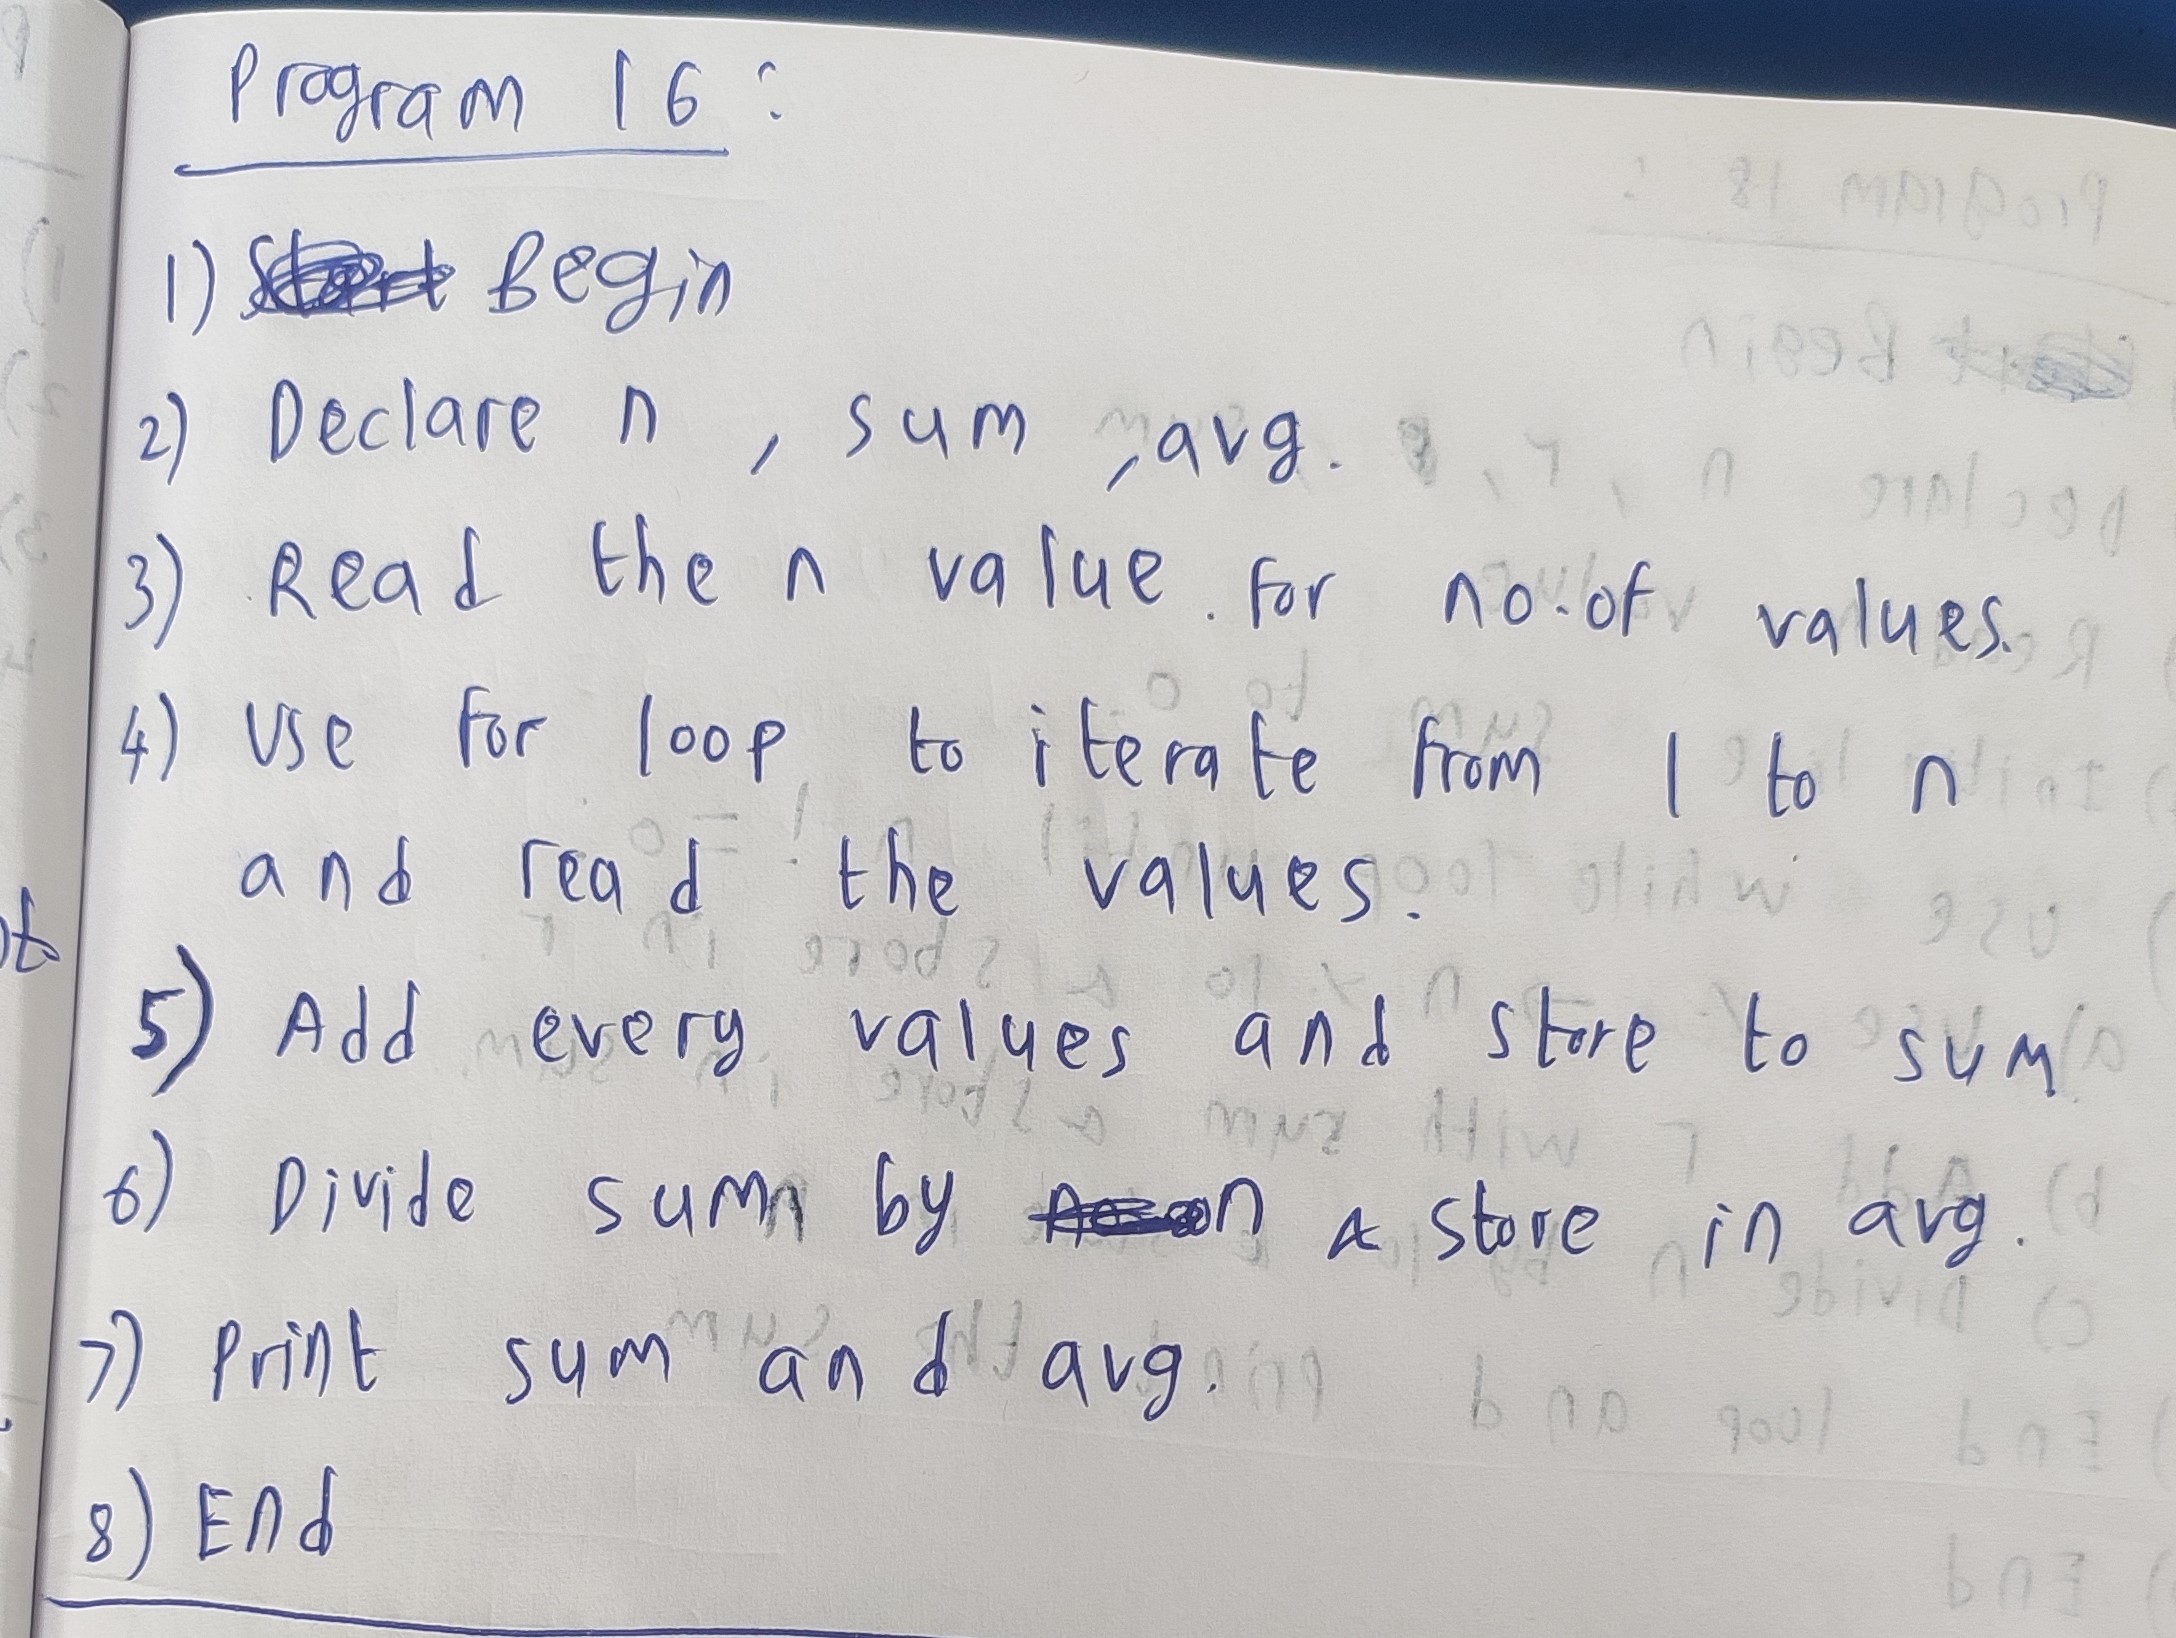 Program 16 :
1) Begin
2) Declare n , sum , avg.
3) Read the n value . for no.of values.
4) Use for loop to iterate from 1 to n
and read the values.
5) Add every values and store to sum
6) Divide sum by n & store in avg.
7) Print sum and avg.
8) End